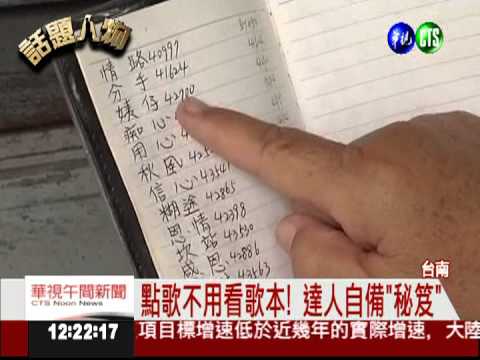 話題人物
華視
CTS
情路40997
分手41624
姨仔42700
痴心
用心
秋風
信心43541
糊塗42865
恩情42398
坎站43530
感恩42886
43563
台南
華視午間新聞
CTS Noon News
點歌不用看歌本! 達人自備"秘笈"
12:22:17
項目標增速低於近幾年的實際增速，大陸